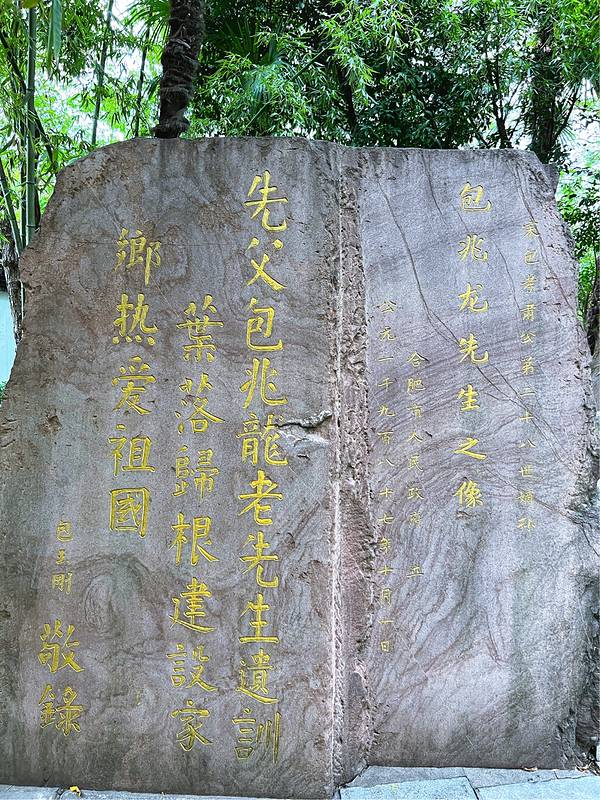 宋包孝肃公第二十八世嫡孙
包兆龙先生之像
合肥市人民政府 立
公元一千九百八十七年十月一日
先父包兆龍老先生遺訓
葉落歸根建設家
鄉热爱祖國
包玉刚 敬錄